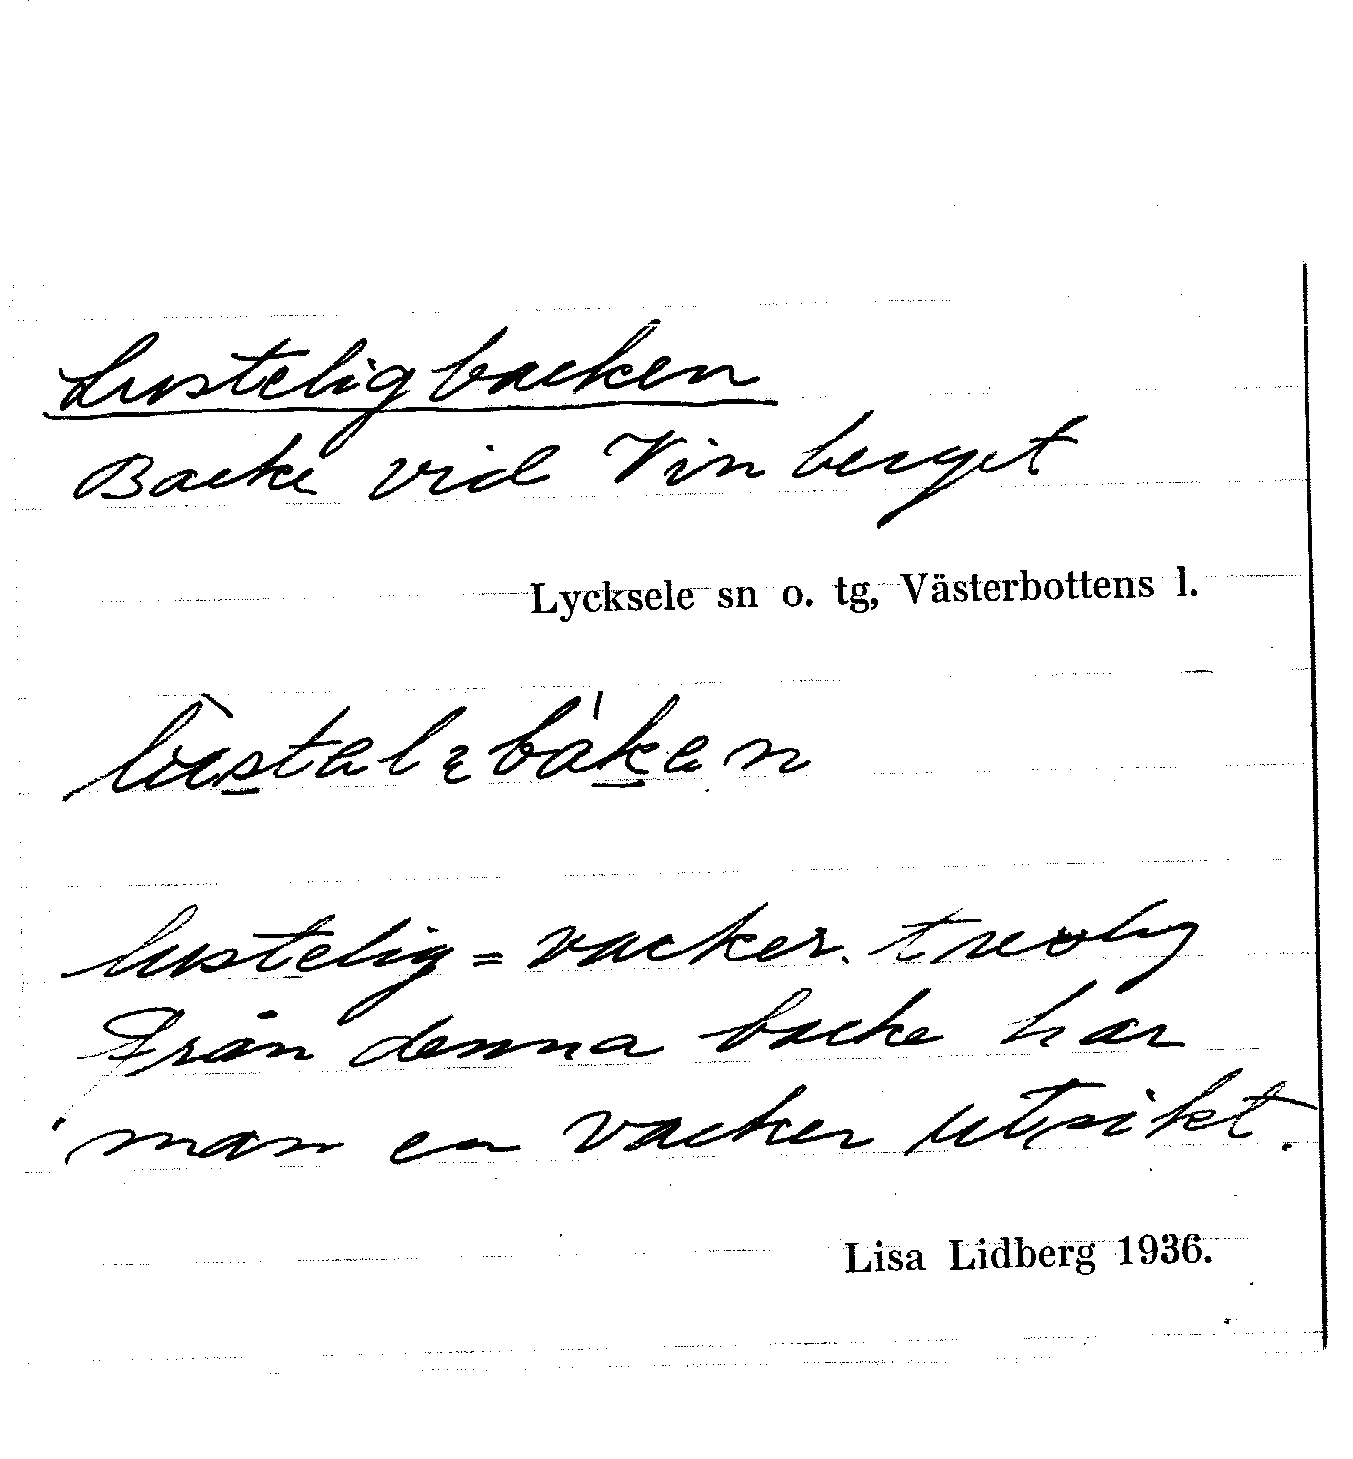 Lusteligbacken
Backe vid Vinberget
Lycksele sn o. tg, Västerbottens l.
lustelig = vacker. trevlig
Från denna backe har
man en vacker utsikt.
Lisa Lidberg 1936.